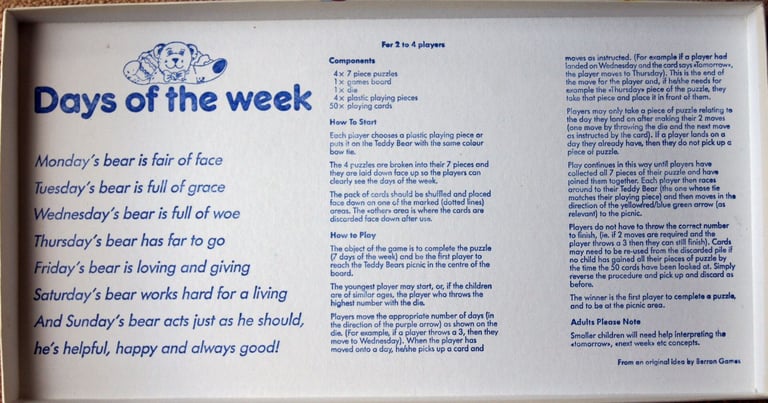 Days of the week
Monday's bear is fair of face
Tuesday's bear is full of grace
Wednesday's bear is full of woe
Thursday's bear has far to go
Friday's bear is loving and giving
Saturday's bear works hard for a living
And Sunday's bear acts just as he should,
he's helpful, happy and always good!
For 2 to 4 players
Components
4× 7 piece puzzles
1× games board
1× die
4× plastic playing pieces
50× playing cards
How To Start
Each player chooses a plastic playing piece or
puts it on the Teddy Bear with the same colour
bow tie.
The 4 puzzles are broken into their 7 pieces and
they are laid down face up so the players can
clearly see the days of the week.
The pack of cards should be shuffled and placed
face down on one of the marked (dotted lines)
areas. The «other» area is where the cards are
discarded face down after use.
How to Play
The object of the game is to complete the puzzle
(7 days of the week) and be the first player to
reach the Teddy Bears picnic in the centre of the
board.
The youngest player may start, or, if the children
are of similar ages, the player who throws the
highest number with the die.
Players move the appropriate number of days (in
the direction of the purple arrow) as shown on the
die. (For example, if a player throws a 3, then they
move to Wednesday). When the player has
moved onto a day, he/she picks up a card and
moves as instructed. (For example if a player had
landed on Wednesday and the card says «Tomorrow»,
the player moves to Thursday). This is the end of
the move for the player and, if he/she needs for
example the «Thursday» piece of the puzzle, they
take that piece and place it in front of them.
Players may only take a piece of puzzle relating to
the day they land on after making their 2 moves
(one move by throwing the die and the next move
as instructed by the card). If a player lands on a
day they already have, then they do not pick up a
piece of puzzle.
Play continues in this way until players have
collected all 7 pieces of their puzzle and have
joined them together. Each player then races
around to their Teddy Bear (the one whose tie
matches their playing piece) and then moves in the
direction of the yellow/red/blue green arrow (as
relevant) to the picnic.
Players do not have to throw the correct number
to finish, (ie. if 2 moves are required and the
player throws a 3 then they can still finish). Cards
may need to be re-used from the discarded pile if
no child has gained all their pieces of puzzle by
the time the 50 cards have been looked at. Simply
reverse the procedure and pick up and discard as
before.
The winner is the first player to complete a puzzle,
and to be at the picnic area.
Adults Please Note
Smaller children will need help interpreting the
«tomorrow», «next week» etc concepts.
From an original idea by Berron Games